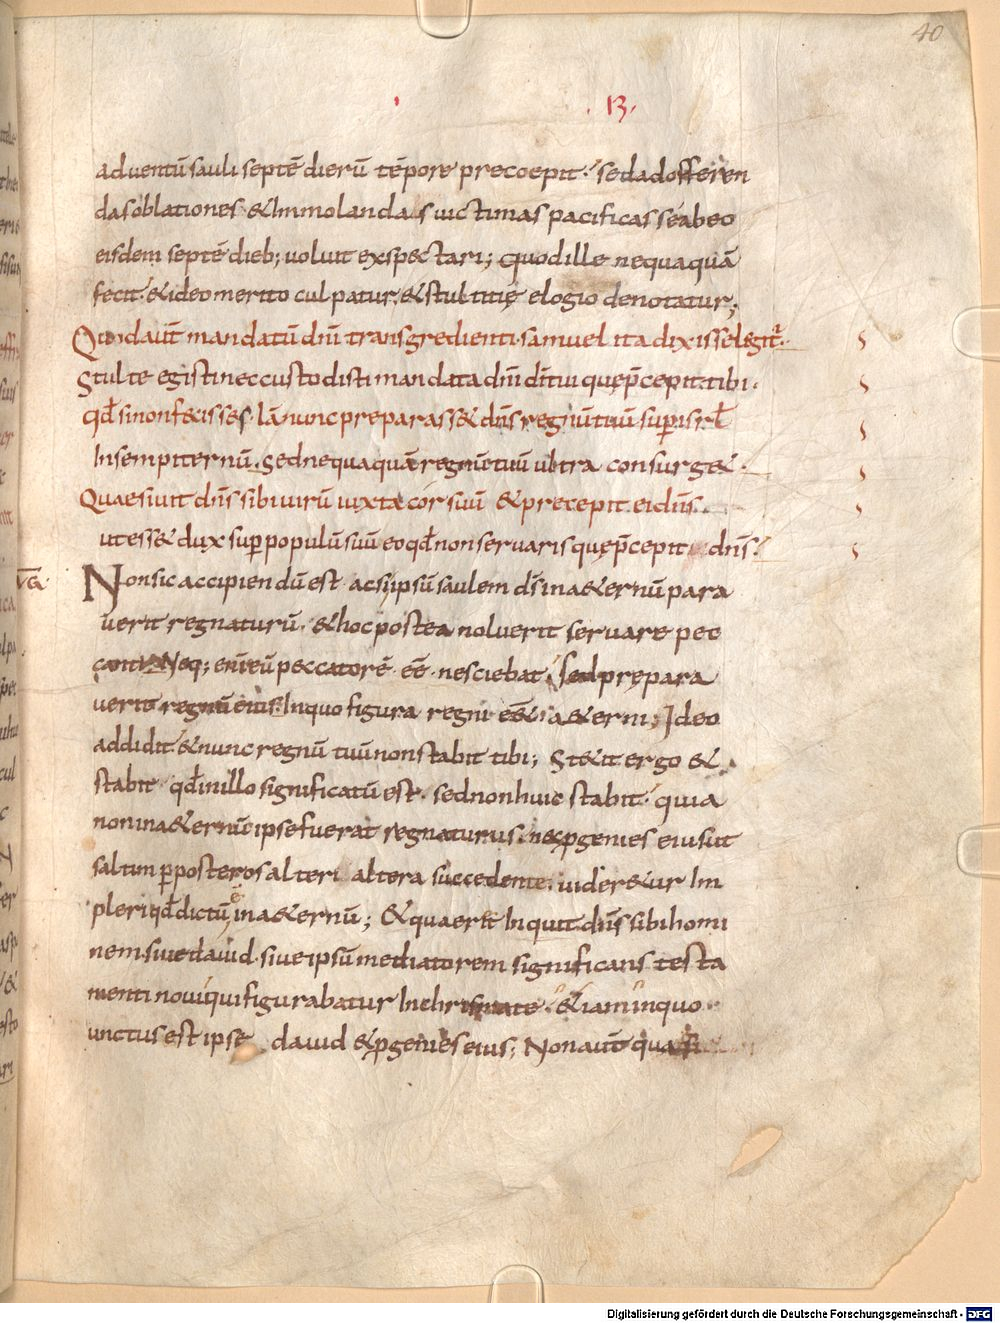 40
.13.
aduentū sauli septē dierū tēpore precoepit. sed ad offeren
das oblationes & immolandas uictimas pacificas se ab eo
eisdem septē dieb; uoluit exspectari; quod ille nequaquā
fecit. & ideo merito culpatur, & stultitię elogio denotatur;
Quod aut̄ mandatū dn̄i transgredienti samuel ita dixisse legit̄.
Stulte egisti nec custodisti mandata dn̄i dī tui quę p̄cepit tibi.
qđ si non fecisses. iā nunc preparass& dn̄s regnū tuū sup isrł
In sempiternū. Sed nequaquā regnū tuū ultra consurg&.
Quaesiuit dn̄s sibi uirū iuxta cor suū & precepit ei dn̄s.
ut ess& dux sup populū suū eo qđ non seruaris quę p̄cepit dn̄s.
Non sic accipiendū est. ac si ipsū saulem dś in a&ernū para
uerit regnaturū. & hoc postea noluerit seruare pec
canti. Neq; enī eū peccatorē eē nesciebat, sed prępara
uerit regnū eius. In quo figura regni ēē& a&erni; Ideo
addidit & nunc regnū tuū non stabit tibi; St&it ergo &
stabit qđ in illo significatū est. sed non huic stabit. quia
non in a&ernū ipse fuerat regnaturus. nec pgenies eius ut
saltim p posteros alteri altera succedente. uider&ur Im
pleri qđ dictū ē in a&ernū; & quaerit Inquit dn̄s sibi homi
nem. siue dauid. siue ipsū mediatorem significans testa
menti noui qui figurabatur In chrismate. & iam in quo
unctus est ipse dauid & pgenies eius; Non aut̄ quasi